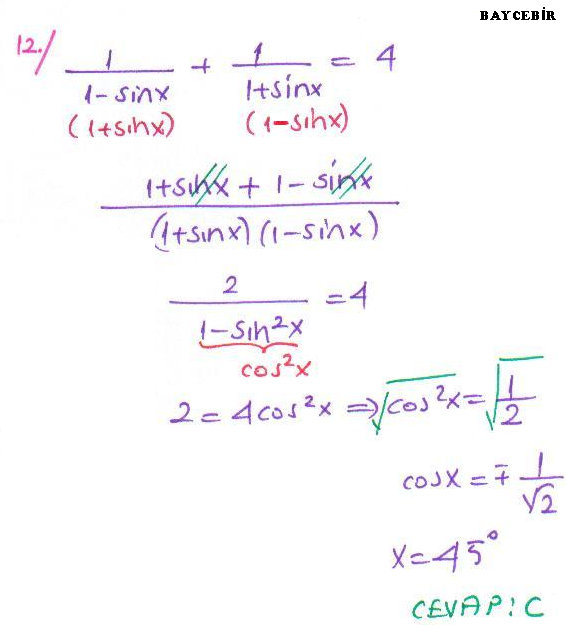 BAYCEBİR
12./ 1/(1-sinx) + 1/(1+sinx) = 4
(1+sinx) (1-sinx)
(1+sinx + 1-sinx)/((1+sinx)(1-sinx))
2/(1-sin²x) = 4
cos²x
2 = 4cos²x ⇒ √cos²x = √(1/2)
cosx = ∓ 1/√2
x = 45°
CEVAP: C